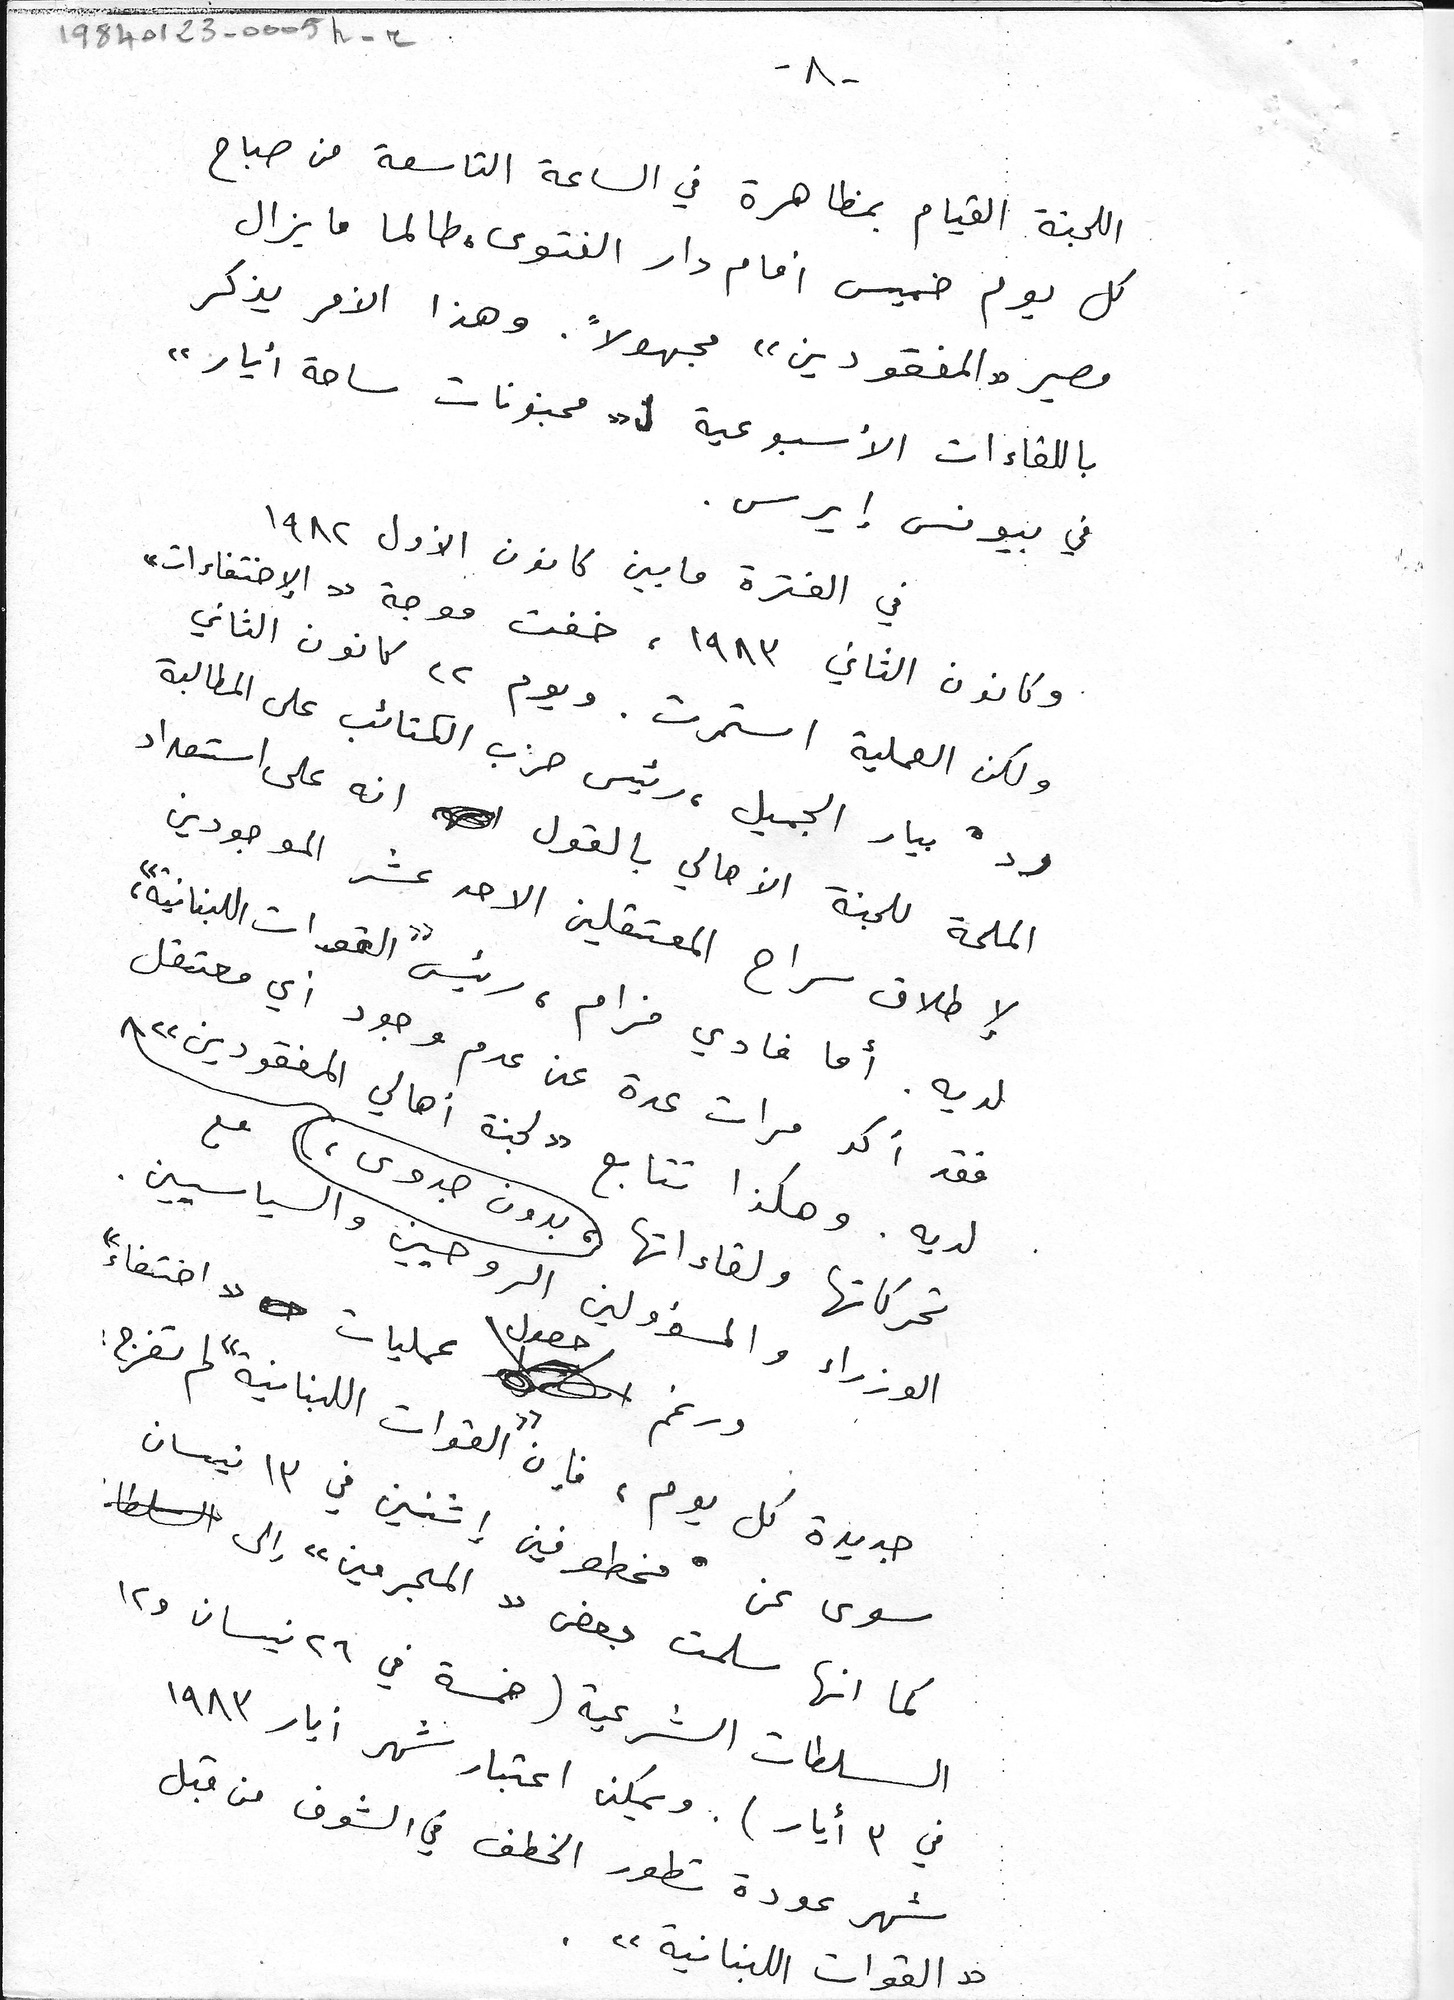 19840123-0005h-r
-٨-
اللجنة القيام بمظاهرة في الساعة التاسعة من صباح
كل يوم خميس أمام دار الفتوى، طالما ما يزال
مصير «المفقودين» مجهولاً. وهذا الأمر يذكر
باللقاءات الأسبوعية لـ«مجنونات ساحة أيار»
في بيونس إيرس.
في الفترة ما بين كانون الأول ١٩٨٢
وكانون الثاني ١٩٨٣، خفت موجة «الإختفاءات»
ولكن العملية استمرت. ويوم ٢٢ كانون الثاني
رد بيار الجميل، رئيس حزب الكتائب على المطالبة
الملحة للجنة الأهالي بالقول انه على استعداد
لإطلاق سراح المعتقلين الاحد عشر الموجودين
لديه. أما فادي فرام، رئيس «القوات اللبنانية»،
فقد أكد مرات عدة عن عدم وجود أي معتقل
لديه. وهكذا تتابع «لجنة أهالي المفقودين»
تحركاتها ولقاءاتها، بدون جدوى، مع
الوزراء والمسؤولين الروحيين والسياسيين.
ورغم حصول عمليات «اختفاء»
جديدة كل يوم، فإن «القوات اللبنانية» لم تفرج
سوى عن مخطوفين إثنين في ١٣ نيسان
كما انها سلمت بعض «المجرمين» إلى السلطا
السلطات الشرعية (خمسة في ٢٦ نيسان و١٢
في ٣ أيار). ويمكن اعتبار شهر أيار ١٩٨٣
شهر عودة تطور الخطف في الشوف من قبل
«القوات اللبنانية».